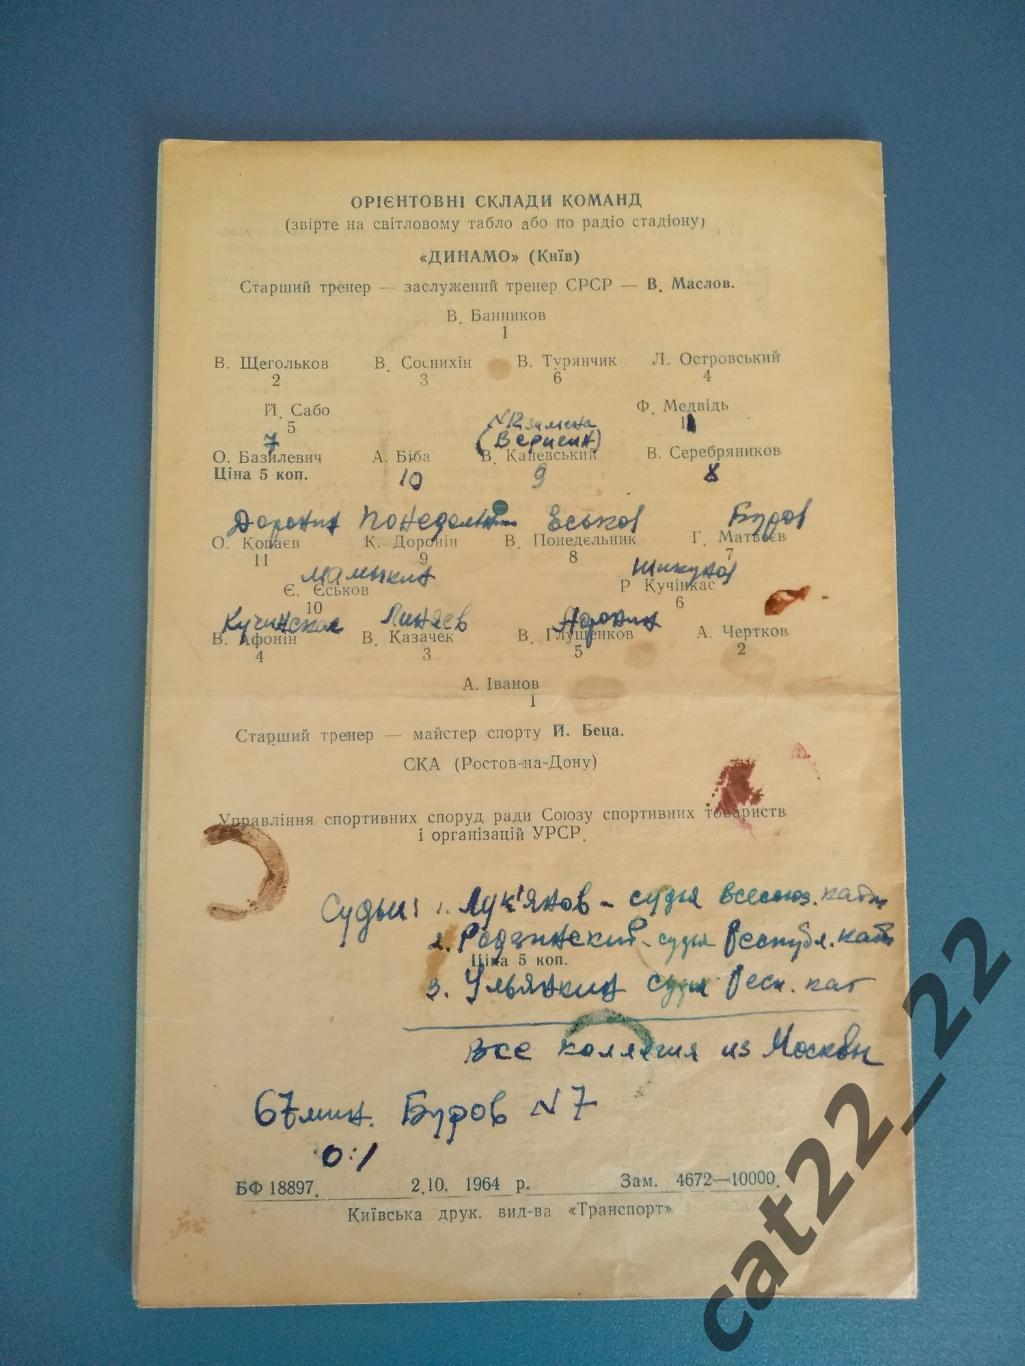 ОРІЄНТОВНІ СКЛАДИ КОМАНД
(звірте на світловому табло або по радіо стадіону)
«ДИНАМО» (Київ)
Старший тренер — заслужений тренер СРСР — В. Маслов.
В. Банников
1
В. Щегольков В. Соснихін В. Турянчик Л. Островський
2 3 6 4
Й. Сабо Ф. Медвідь
5 11
7 N12 замена
(Вериgин)
О. Базилевич А. Біба В. Каневський В. Серебряников
Ціна 5 коп. 10 9 8
Доронин Понедельник Еськов Буров
О. Копаєв К. Доронін В. Понедєльник Г. Матвєєв
11 9 8 7
Мамыкин Шикунов
Є. Єськов Р Кучінкас
10 6
Кучинскас Линяев Афонин
В. Афонін В. Казачек В. Глущенков А. Чертков
4 3 5 2
А. Іванов
1
Старший тренер — майстер спорту Й. Беца.
СКА (Ростов-на-Дону)
Управління спортивних споруд ради Союзу спортивних товариств
і організацій УРСР.
Судьи: 1. Лук'янов – судья всесоюз. кат.
2. Радзинский – судья Республ. кат
Ціна 5 коп.
3. Ульянкин судья Респ. кат
Все коллегия из Москвы
67 мин. Буров N7
0:1
БФ 18897. 2.10. 1964 р. Зам. 4672—10000.
Київська друк. вид-ва «Транспорт»
cat22__22